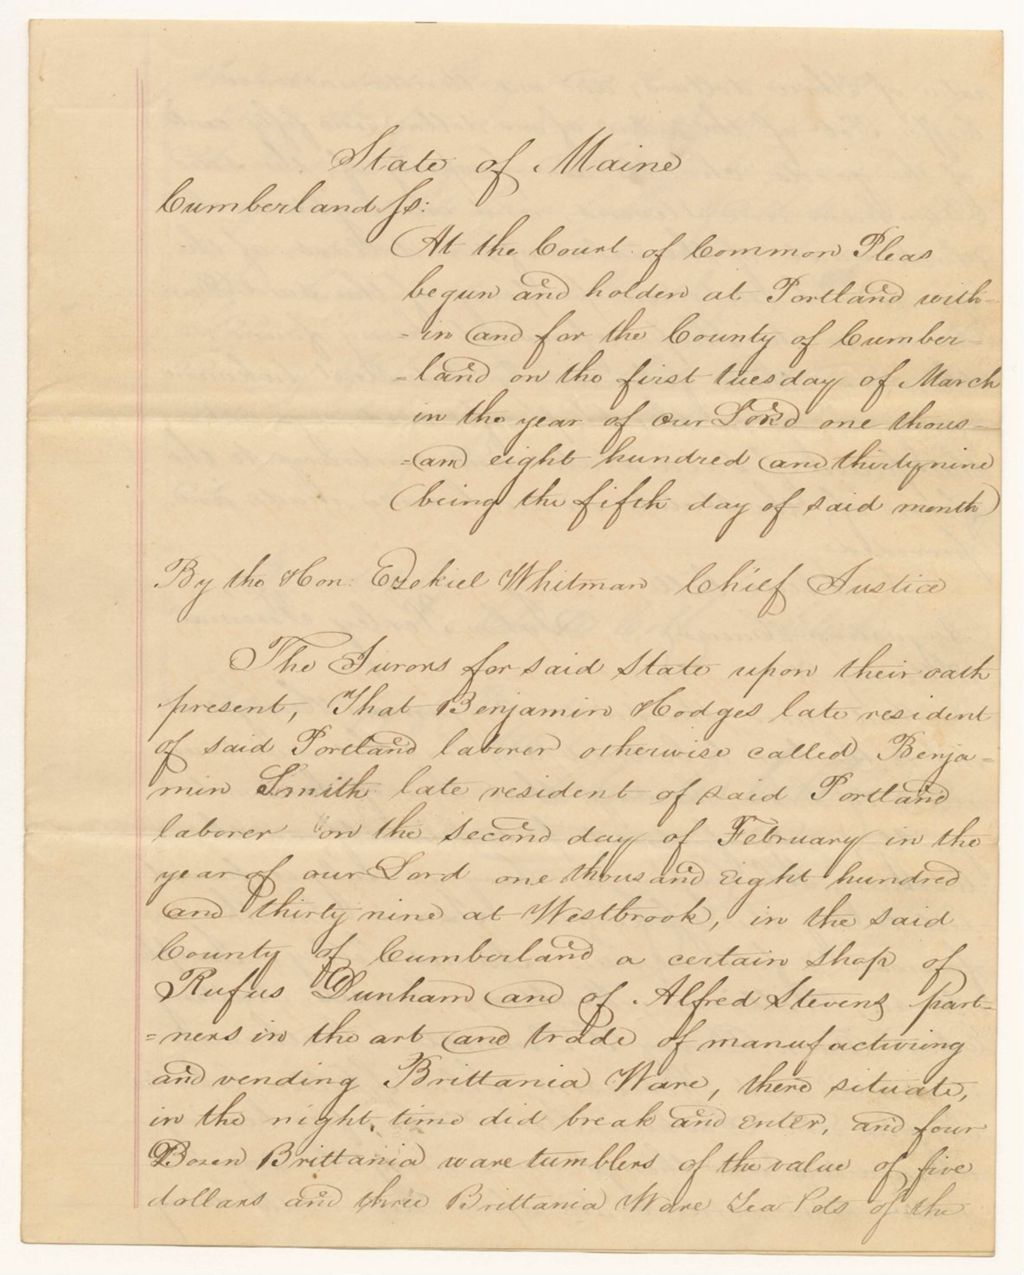 State of Maine
Cumberland ss:
At the Court of Common Pleas
begun and holden at Portland with-
=in and for the County of Cumber-
=land on the first tuesday of March
in the year of our Lord one thous-
=and eight hundred and thirty nine
(being the fifth day of said month)
By the Hon: Ezekiel Whitman Chief Justice
The Jurors for said State upon their oath
present, That Benjamin Hodges late resident
of said Portland laborer otherwise called Benja-
min Smith late resident of said Portland
laborer on the second day of February in the
year of our Lord one thousand eight hundred
and thirty nine at Westbrook, in the said
County of Cumberland a certain shop of
Rufus Dunham and of Alfred Stevens part-
=ners in the art and trade of manufacturing
and vending Brittania Ware, there situate,
in the night, time did break and enter, and four
Dozen Brittania ware tumblers of the value of five
dollars and three Brittania Ware Tea Pots of the